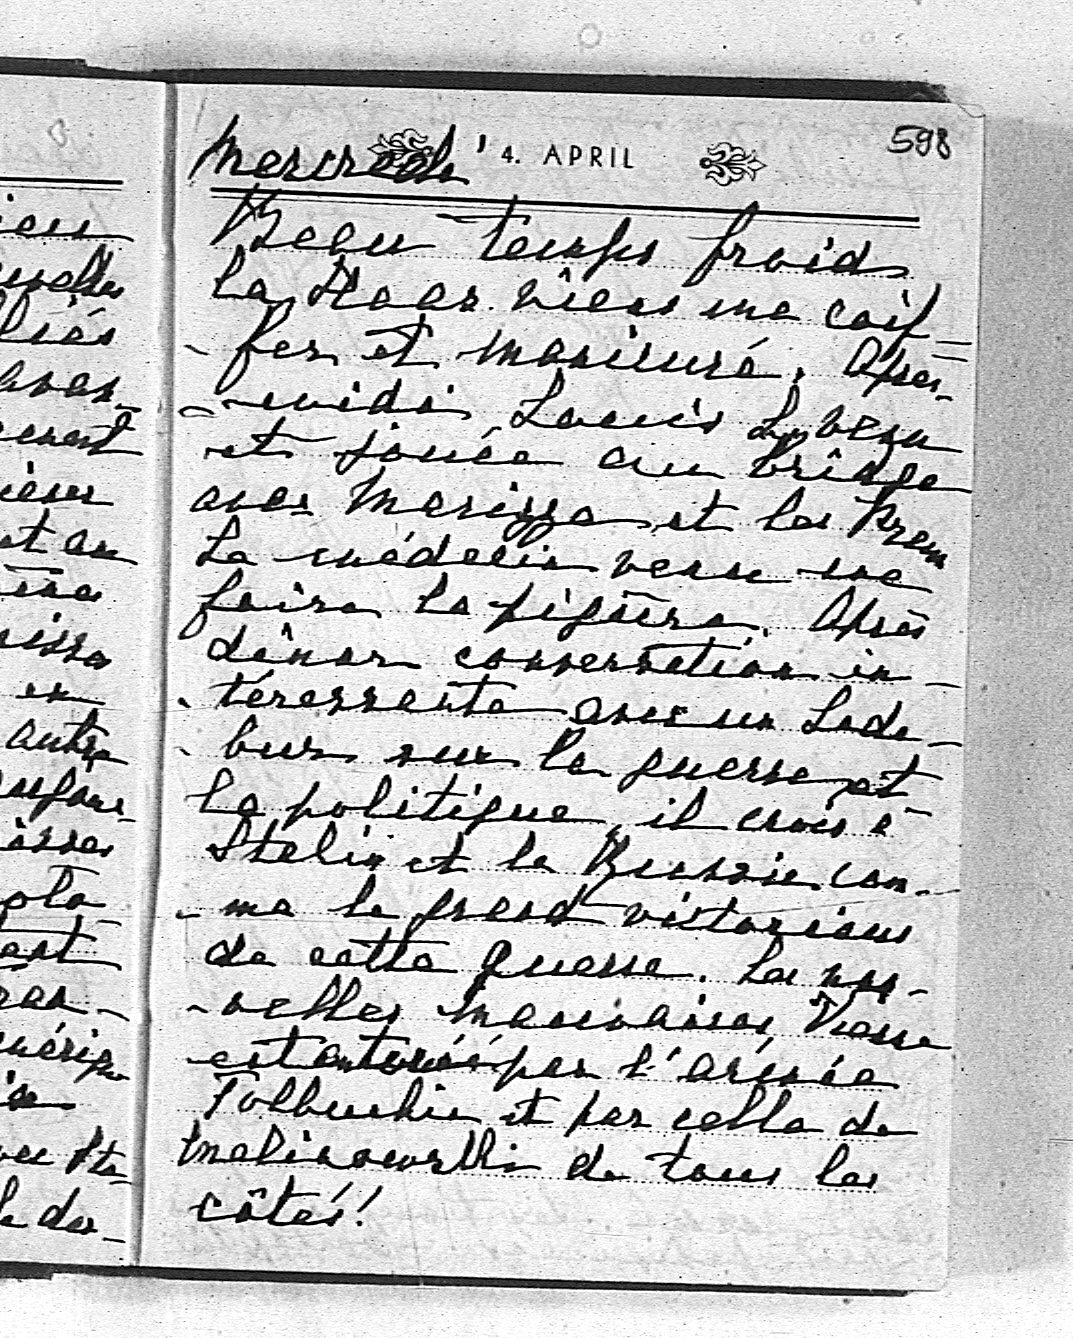 598
Mercredi 4. APRIL
Beau temps froid
La Haar vient me coif=
-fer et manicuré. Après-
-midi Louis L. venu
et jouée au bridge
avec Marizza et les Krem
Le médecin venu me
faire la piqûre. Après
dîner conversation in-
-téressante avec un Lede-
-bur sur la guerre et
la politique, il crois à
Stalin et la Russie com-
-me le grand victorieux
de cette guerre. Les nou-
-velles mauvaises, Vienne
est entourée par l'armée
Tolbuchin et par celle de
Malinowski de tous les
côtés!
ieu
liés
avan-
ient
et au
issa
en
autre
pola-
ran-
et
le da-